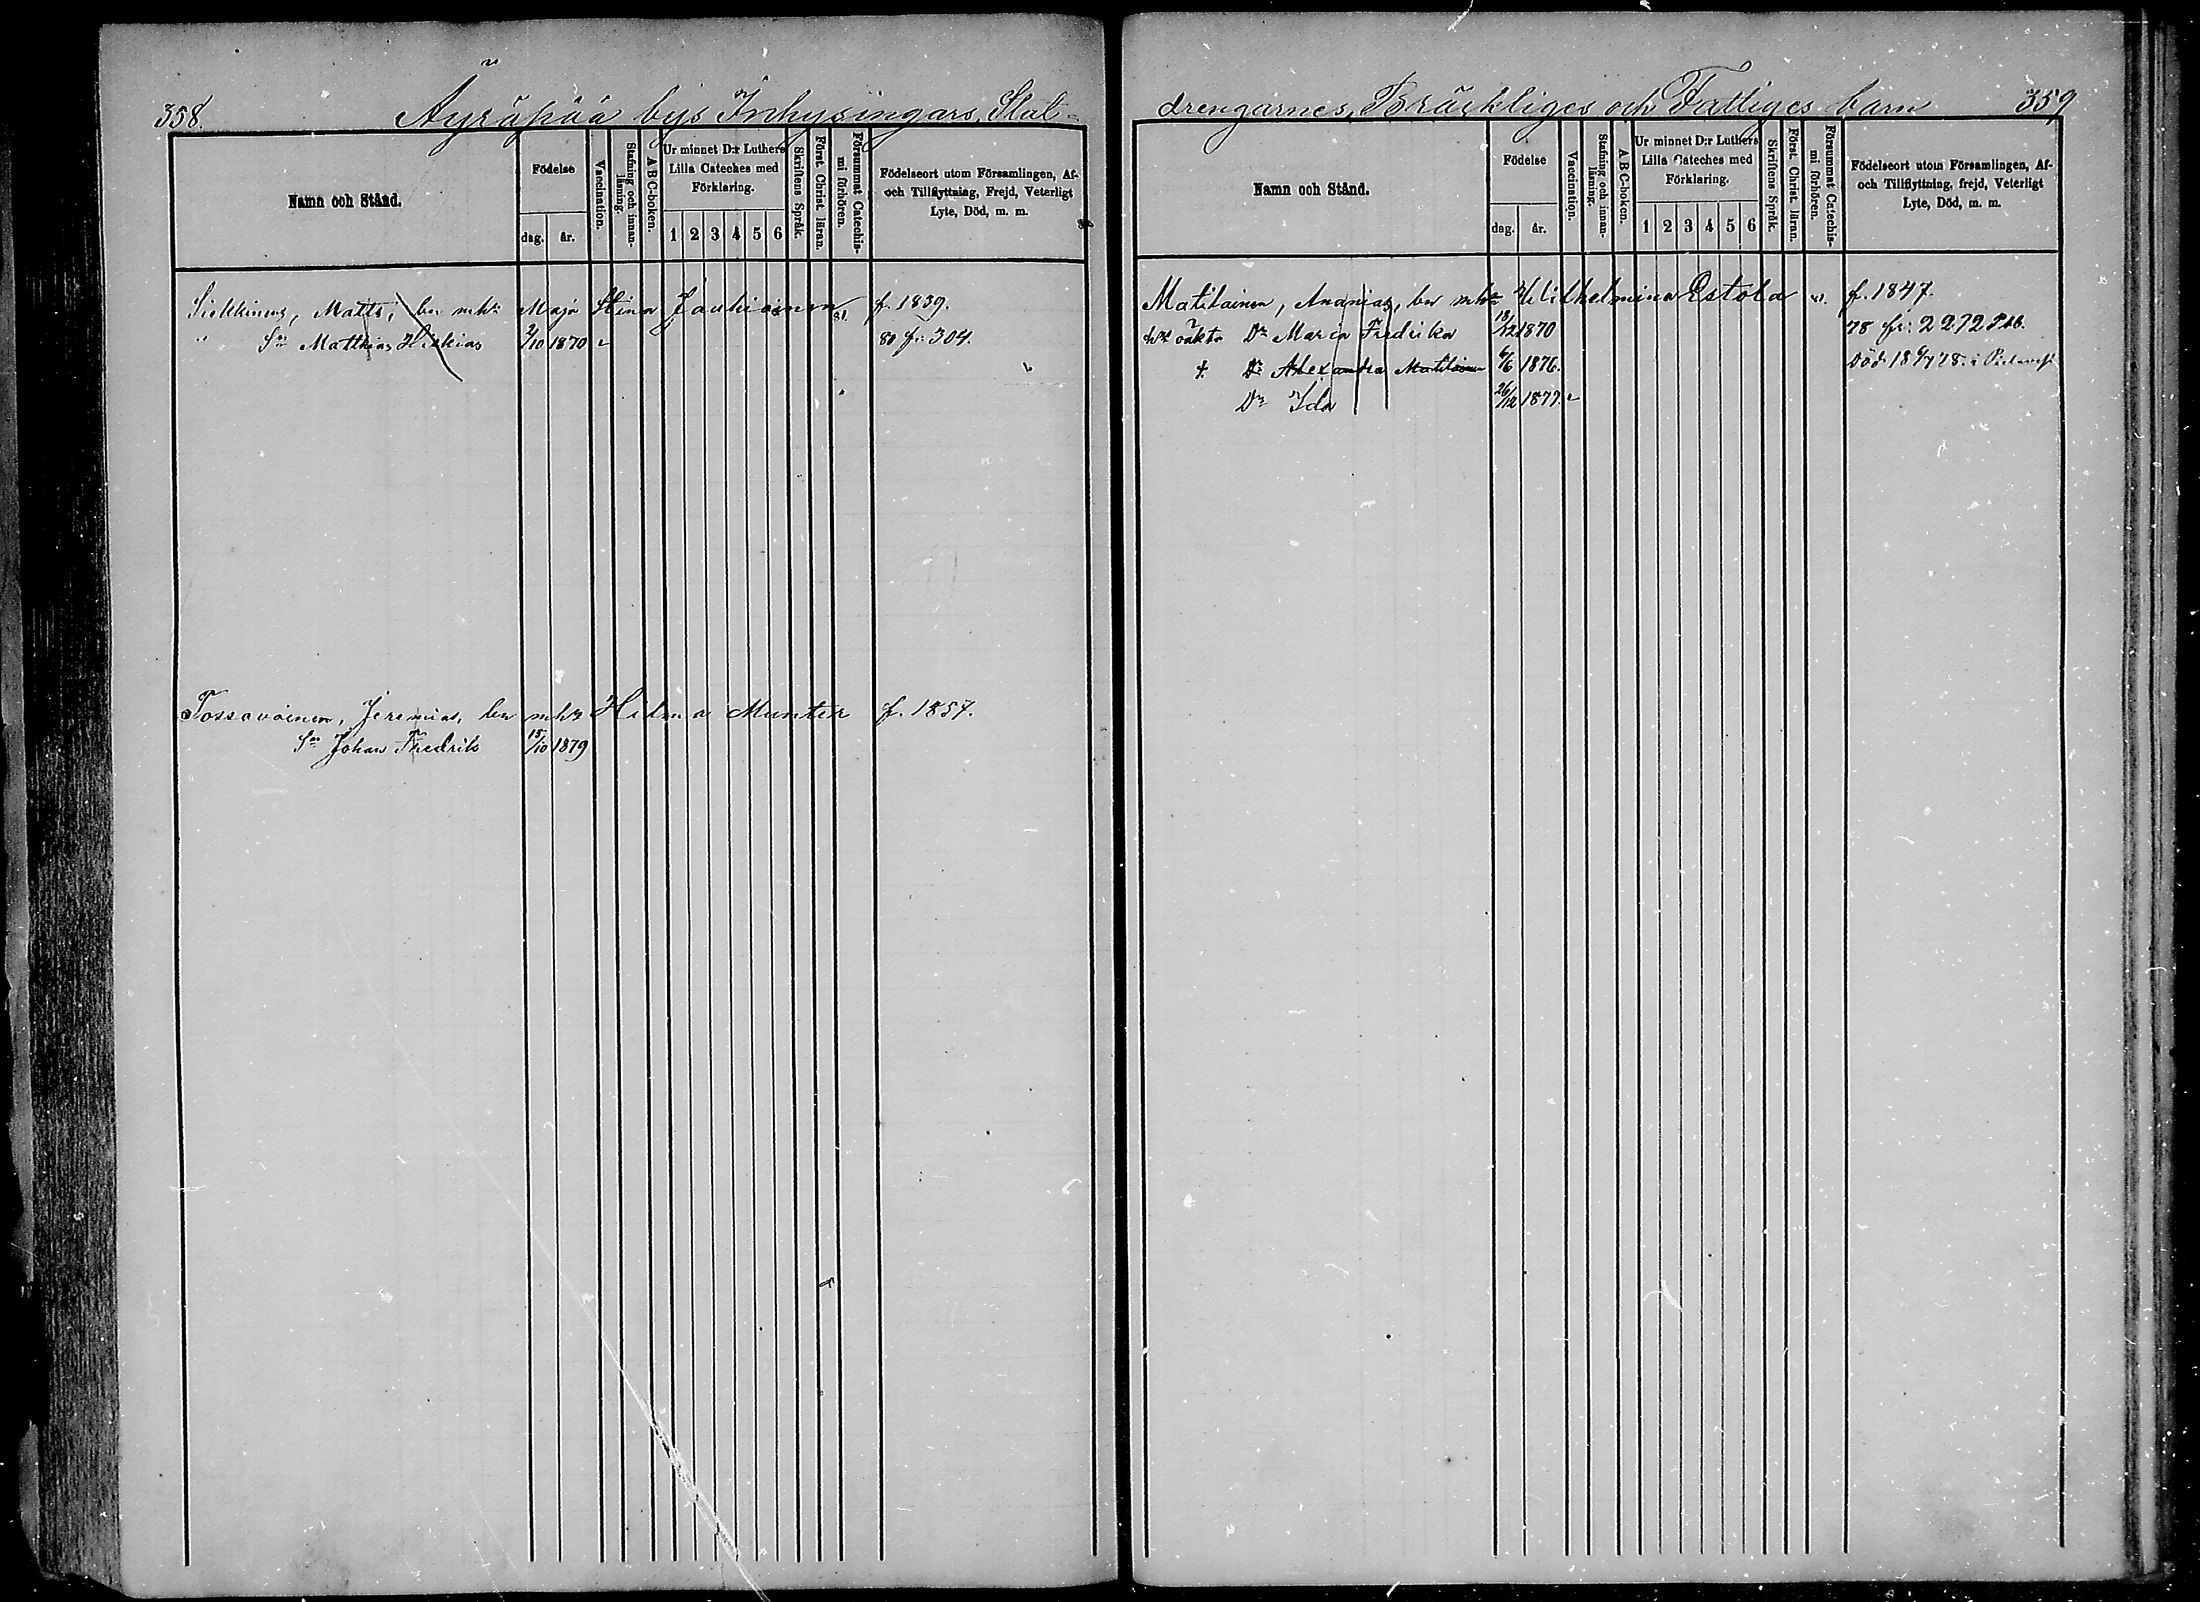 358.
Äyräpää bys Inhysingars, Stat-
Namn och Stånd.
Födelse
dag. år.
Vaccination.
Stafning och innanläsning.
A B C-boken.
Ur minnet D:r Luthers
Lilla Cateches med
Förklaring.
1 2 3 4 5 6
Skriftens Språk.
Först. Christ. läran.
Försummat Catechis-
mi förhören.
Födelseort utom Församlingen, Af-
och Tillflyttning, Frejd, Veterligt
Lyte, Död, m. m.
Siekkinens, Matts, bn m hu Maja Stina Jauhiainen 81. f. 1839.
" Sn Matthias Hiskias 2/10 1870 80 fr: 304.
Tossavainen, Jeremias, bn m hu Hilma Munter f. 1857.
Sn Johan Fredrik 15/10 1879
drengarnes, Bräckliges och Fattiges barn
359
Namn och Stånd.
Födelse
dag. år.
Vaccination.
Stafning och innanläsning.
A B C-boken.
Ur minnet D:r Luthers
Lilla Cateches med
Förklaring.
1 2 3 4 5 6
Skriftens Språk.
Först. Christ. läran.
Försummat Catechis-
mi förhören.
Födelseort utom Församlingen, Af-
och Tillflyttning, frejd, Veterligt
Lyte, Död, m. m.
Matilainen, Ananias, bn m hu Wilhelmina Estola f. 1847.
hus oäkta Dr Maria Fredrika 18/12 1870 78 fr: 2272
† Dr Alexandra Matilainen 6/6 1876. Död 18 6/4 78. i
Dr Ida 26/12 1877